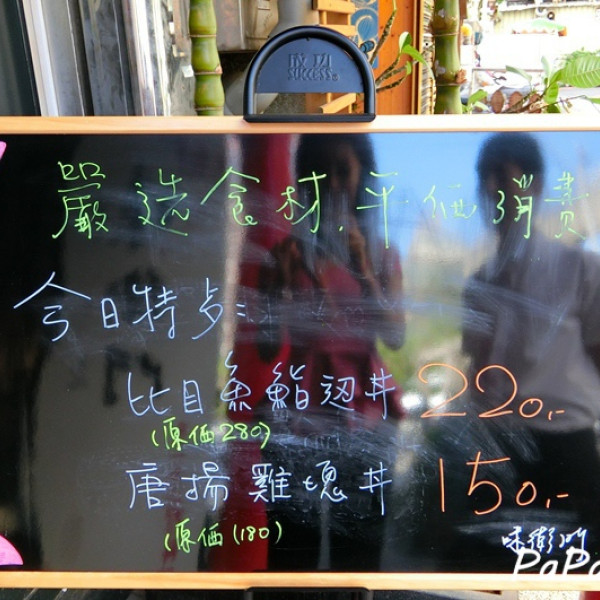 成功
SUCCESS
嚴选食材.平価消費
今日特歺:
比目魚鮨边丼 220.-
(原価280)
唐揚雞塊丼 150.-
(原価(180)
PaPa